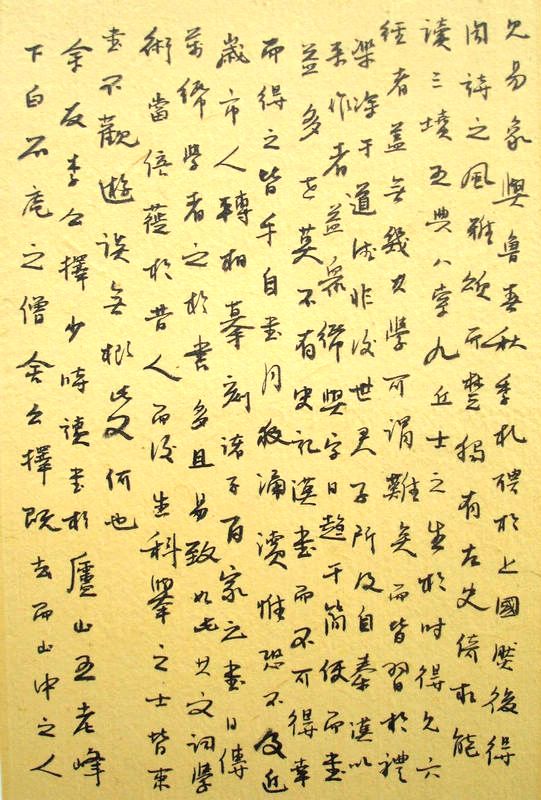 見易象與魯春秋季札聘於上國然後得
聞詩之風雅頌而楚獨有左史倚相能
讀三墳五典八索九丘士之生於時得見六
經者蓋無幾其學可謂難矣而皆習於禮
樂深于道德非後世君子所及自秦漢以
來作者益眾紙與字日趨于簡便而書
益多世莫不有史記漢書而不可得幸
而得之皆手自書日夜誦讀惟恐不及近
歲市人轉相摹刻諸子百家之書日傳
萬紙學者之於書多且易致如此其文詞學
術當倍蓰於昔人而後生科舉之士皆束
書不觀遊談無根此又何也
余友李公擇少時讀書於廬山五老峰
下白石庵之僧舍公擇既去而山中之人